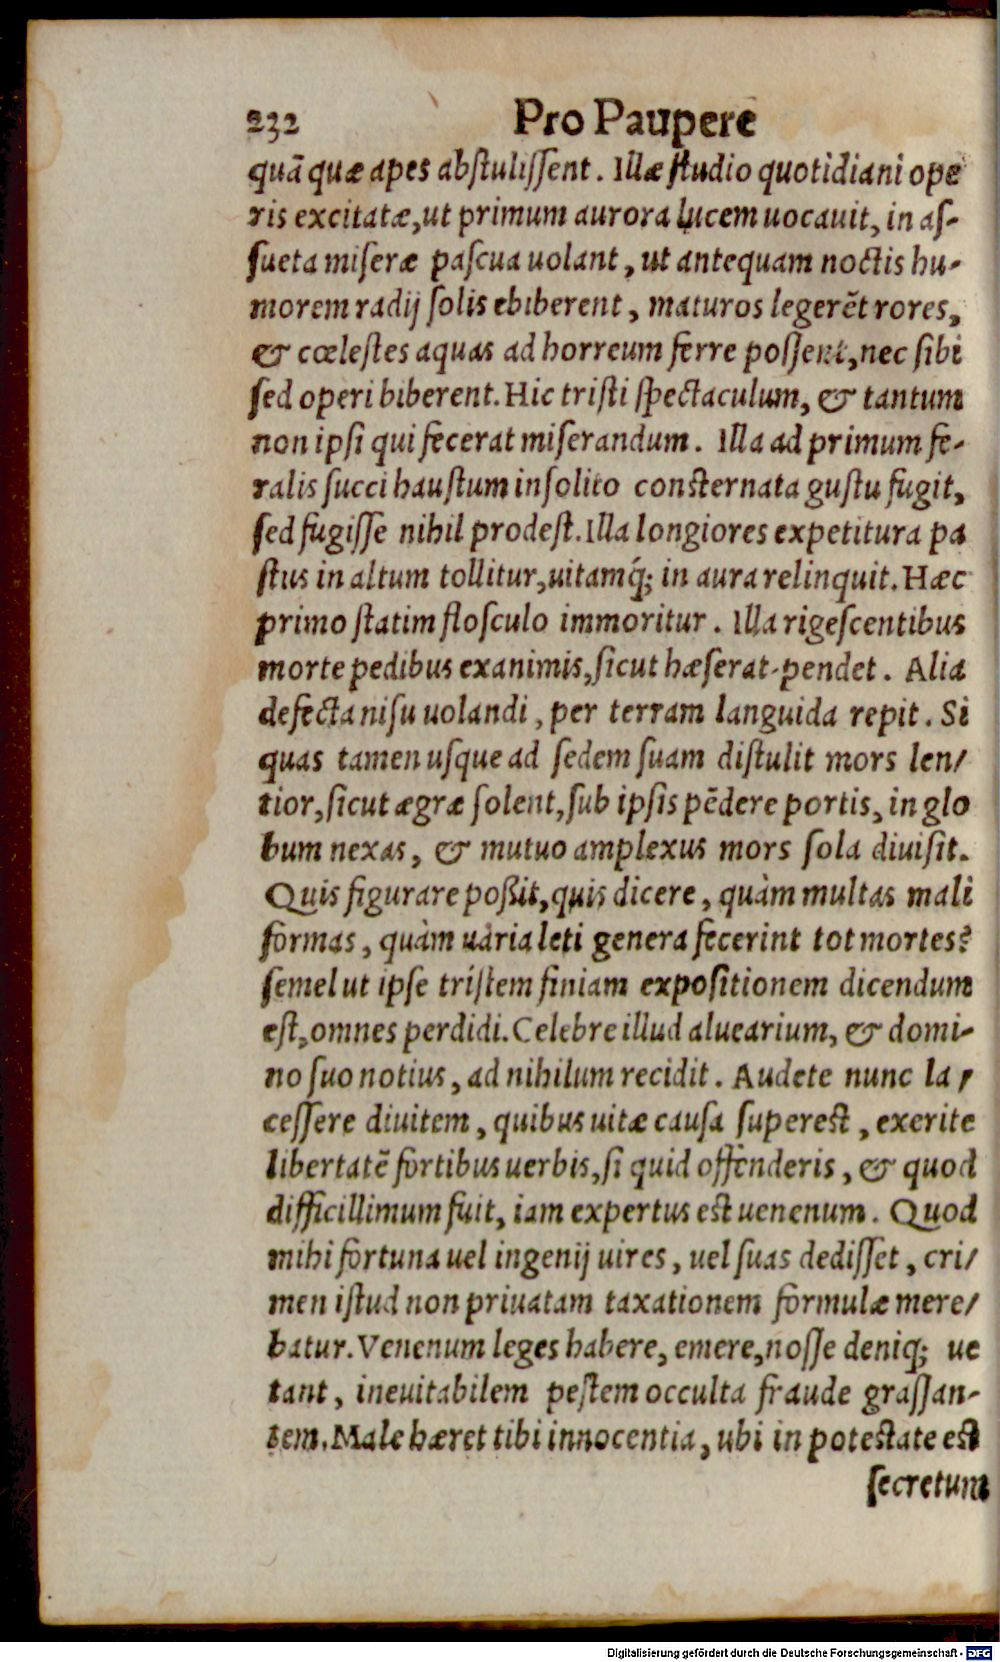 232 Pro Paupere
quā quæ apes abſtuliſſent. Illæ ſtudio quotidiani ope
ris excitatæ, ut primum aurora lucem uocauit, in aſ-
ſueta miſeræ paſcua uolant, ut antequam noctis hu-
morem radij ſolis ebiberent, maturos legerēt rores,
& cœleſtes aquas ad horreum ferre poſſent, nec ſibi
ſed operi biberent. Hic triſti ſpectaculum, & tantum
non ipſi qui fecerat miſerandum. Illa ad primum fe-
ralis ſucci hauſtum inſolito conſternata guſtu fugit,
ſed fugiſſe nihil prodeſt. Illa longiores expetitura pa
ſtus in altum tollitur, uitamq́; in aura relinquit. Hæc
primo ſtatim floſculo immoritur. Illa rigeſcentibus
morte pedibus exanimis, ſicut hæſerat pendet. Alia
defecta niſu uolandi, per terram languida repit. Si
quas tamen uſque ad ſedem ſuam diſtulit mors len/
tior, ſicut ægræ ſolent, ſub ipſis pēdere portis, in glo
bum nexas, & mutuo amplexus mors ſola diuiſit.
Quis figurare poßit, quis dicere, quàm multas mali
formas, quàm uaria leti genera fecerint tot mortes?
ſemel ut ipſe triſtem finiam expoſitionem dicendum
eſt, omnes perdidi. Celebre illud aluearium, & domi-
no ſuo notius, ad nihilum recidit. Audete nunc la/
ceſſere diuitem, quibus uitæ cauſa ſupereſt, exerite
libertatē fortibus uerbis, ſi quid offenderis, & quod
difficillimum fuit, iam expertus eſt uenenum. Quod
mihi fortuna uel ingenij uires, uel ſuas dediſſet, cri/
men iſtud non priuatam taxationem formulæ mere/
batur. Venenum leges habere, emere, noſſe deniq; ue
tant, ineuitabilem peſtem occulta fraude graſſan-
tem. Male hæret tibi innocentia, ubi in poteſtate eſt
ſecretum
Digitalisierung gefördert durch die Deutsche Forschungsgemeinschaft - DFG